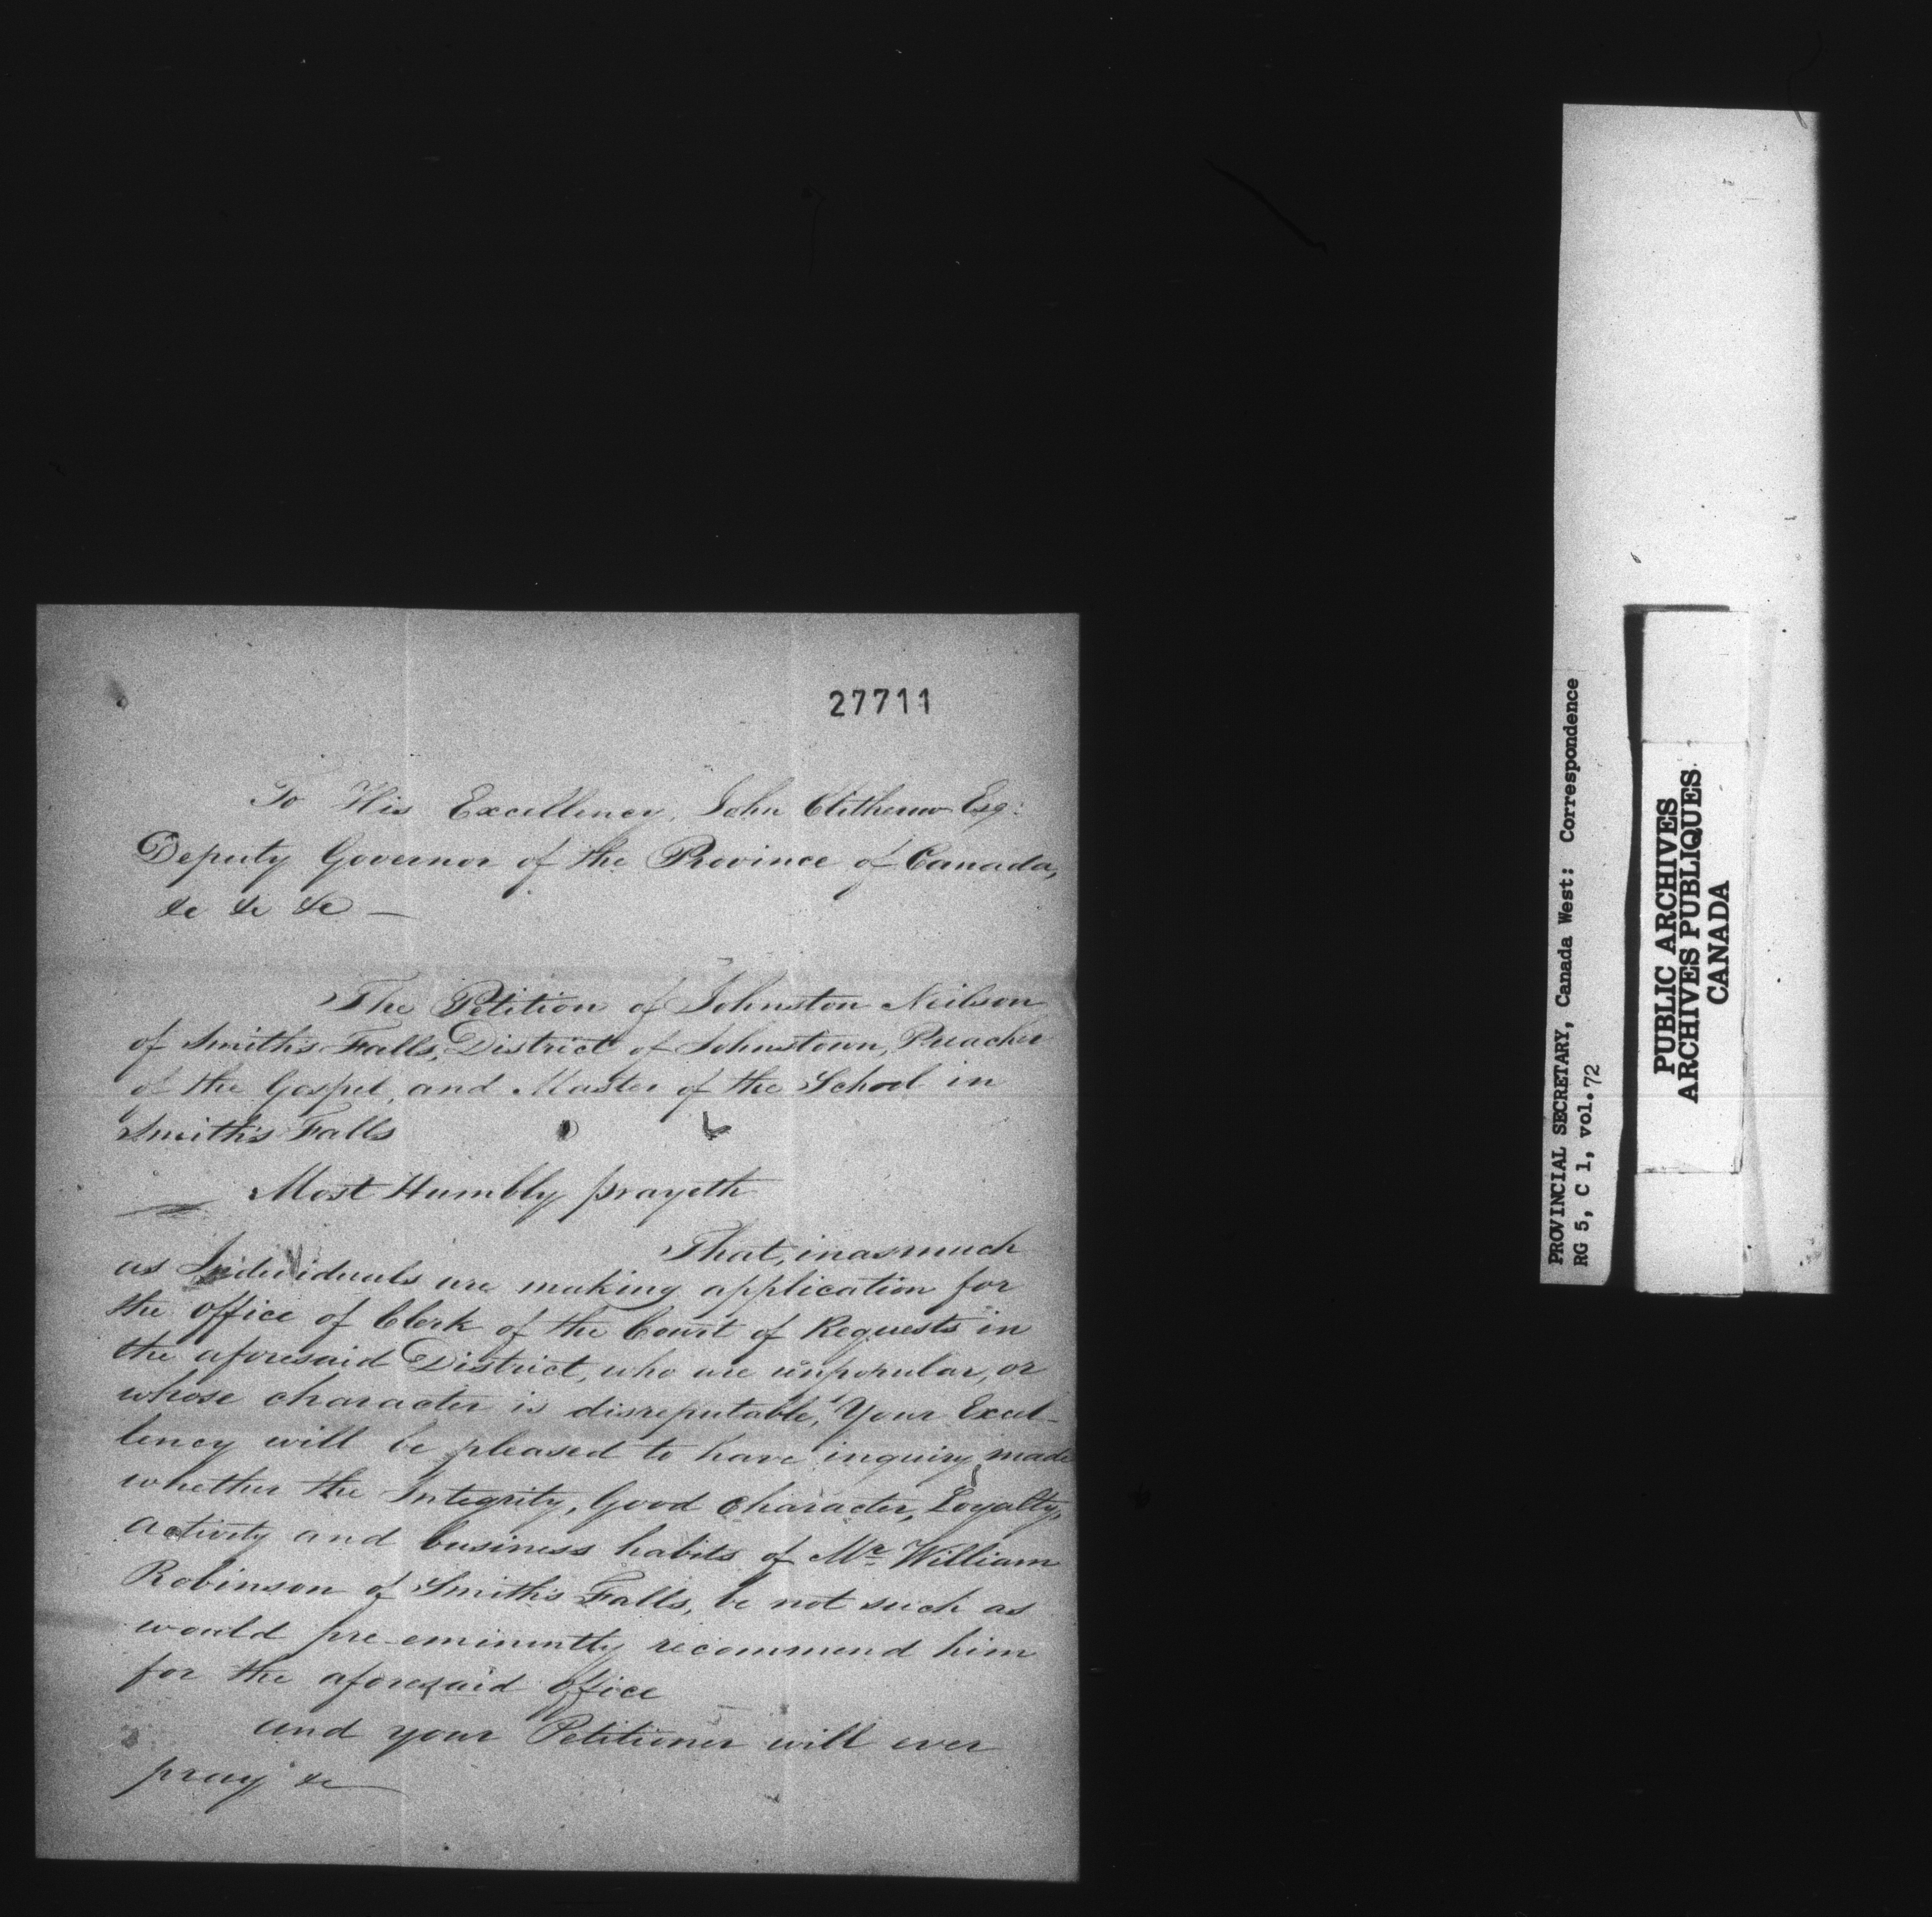 27711
To His Excellency, John Clitherow Esq:
Deputy Governor of the Province of Canada,
&c &c &c —
The Petition of Johnston Neilson
of Smith's Falls, District of Johnstown, Preacher
of the Gospel, and Master of the School in
Smith's Falls
Most Humbly prayeth
That, inasmuch
as Individuals are making application for
the office of Clerk of the Court of Requests in
the aforesaid District, who are unpopular, or
whose character is disreputable, Your Excel-
lency will be pleased to have inquiry made
whether the Integrity, Good Character, Loyalty,
activity and business habits of Mr. William
Robinson of Smith's Falls, be not such as
would pre-eminently recommend him
for the aforesaid office
and your Petitioner will ever
pray &c
PROVINCIAL SECRETARY, Canada West: Correspondence
RG 5, C 1, vol. 72
PUBLIC ARCHIVES
ARCHIVES PUBLIQUES
CANADA